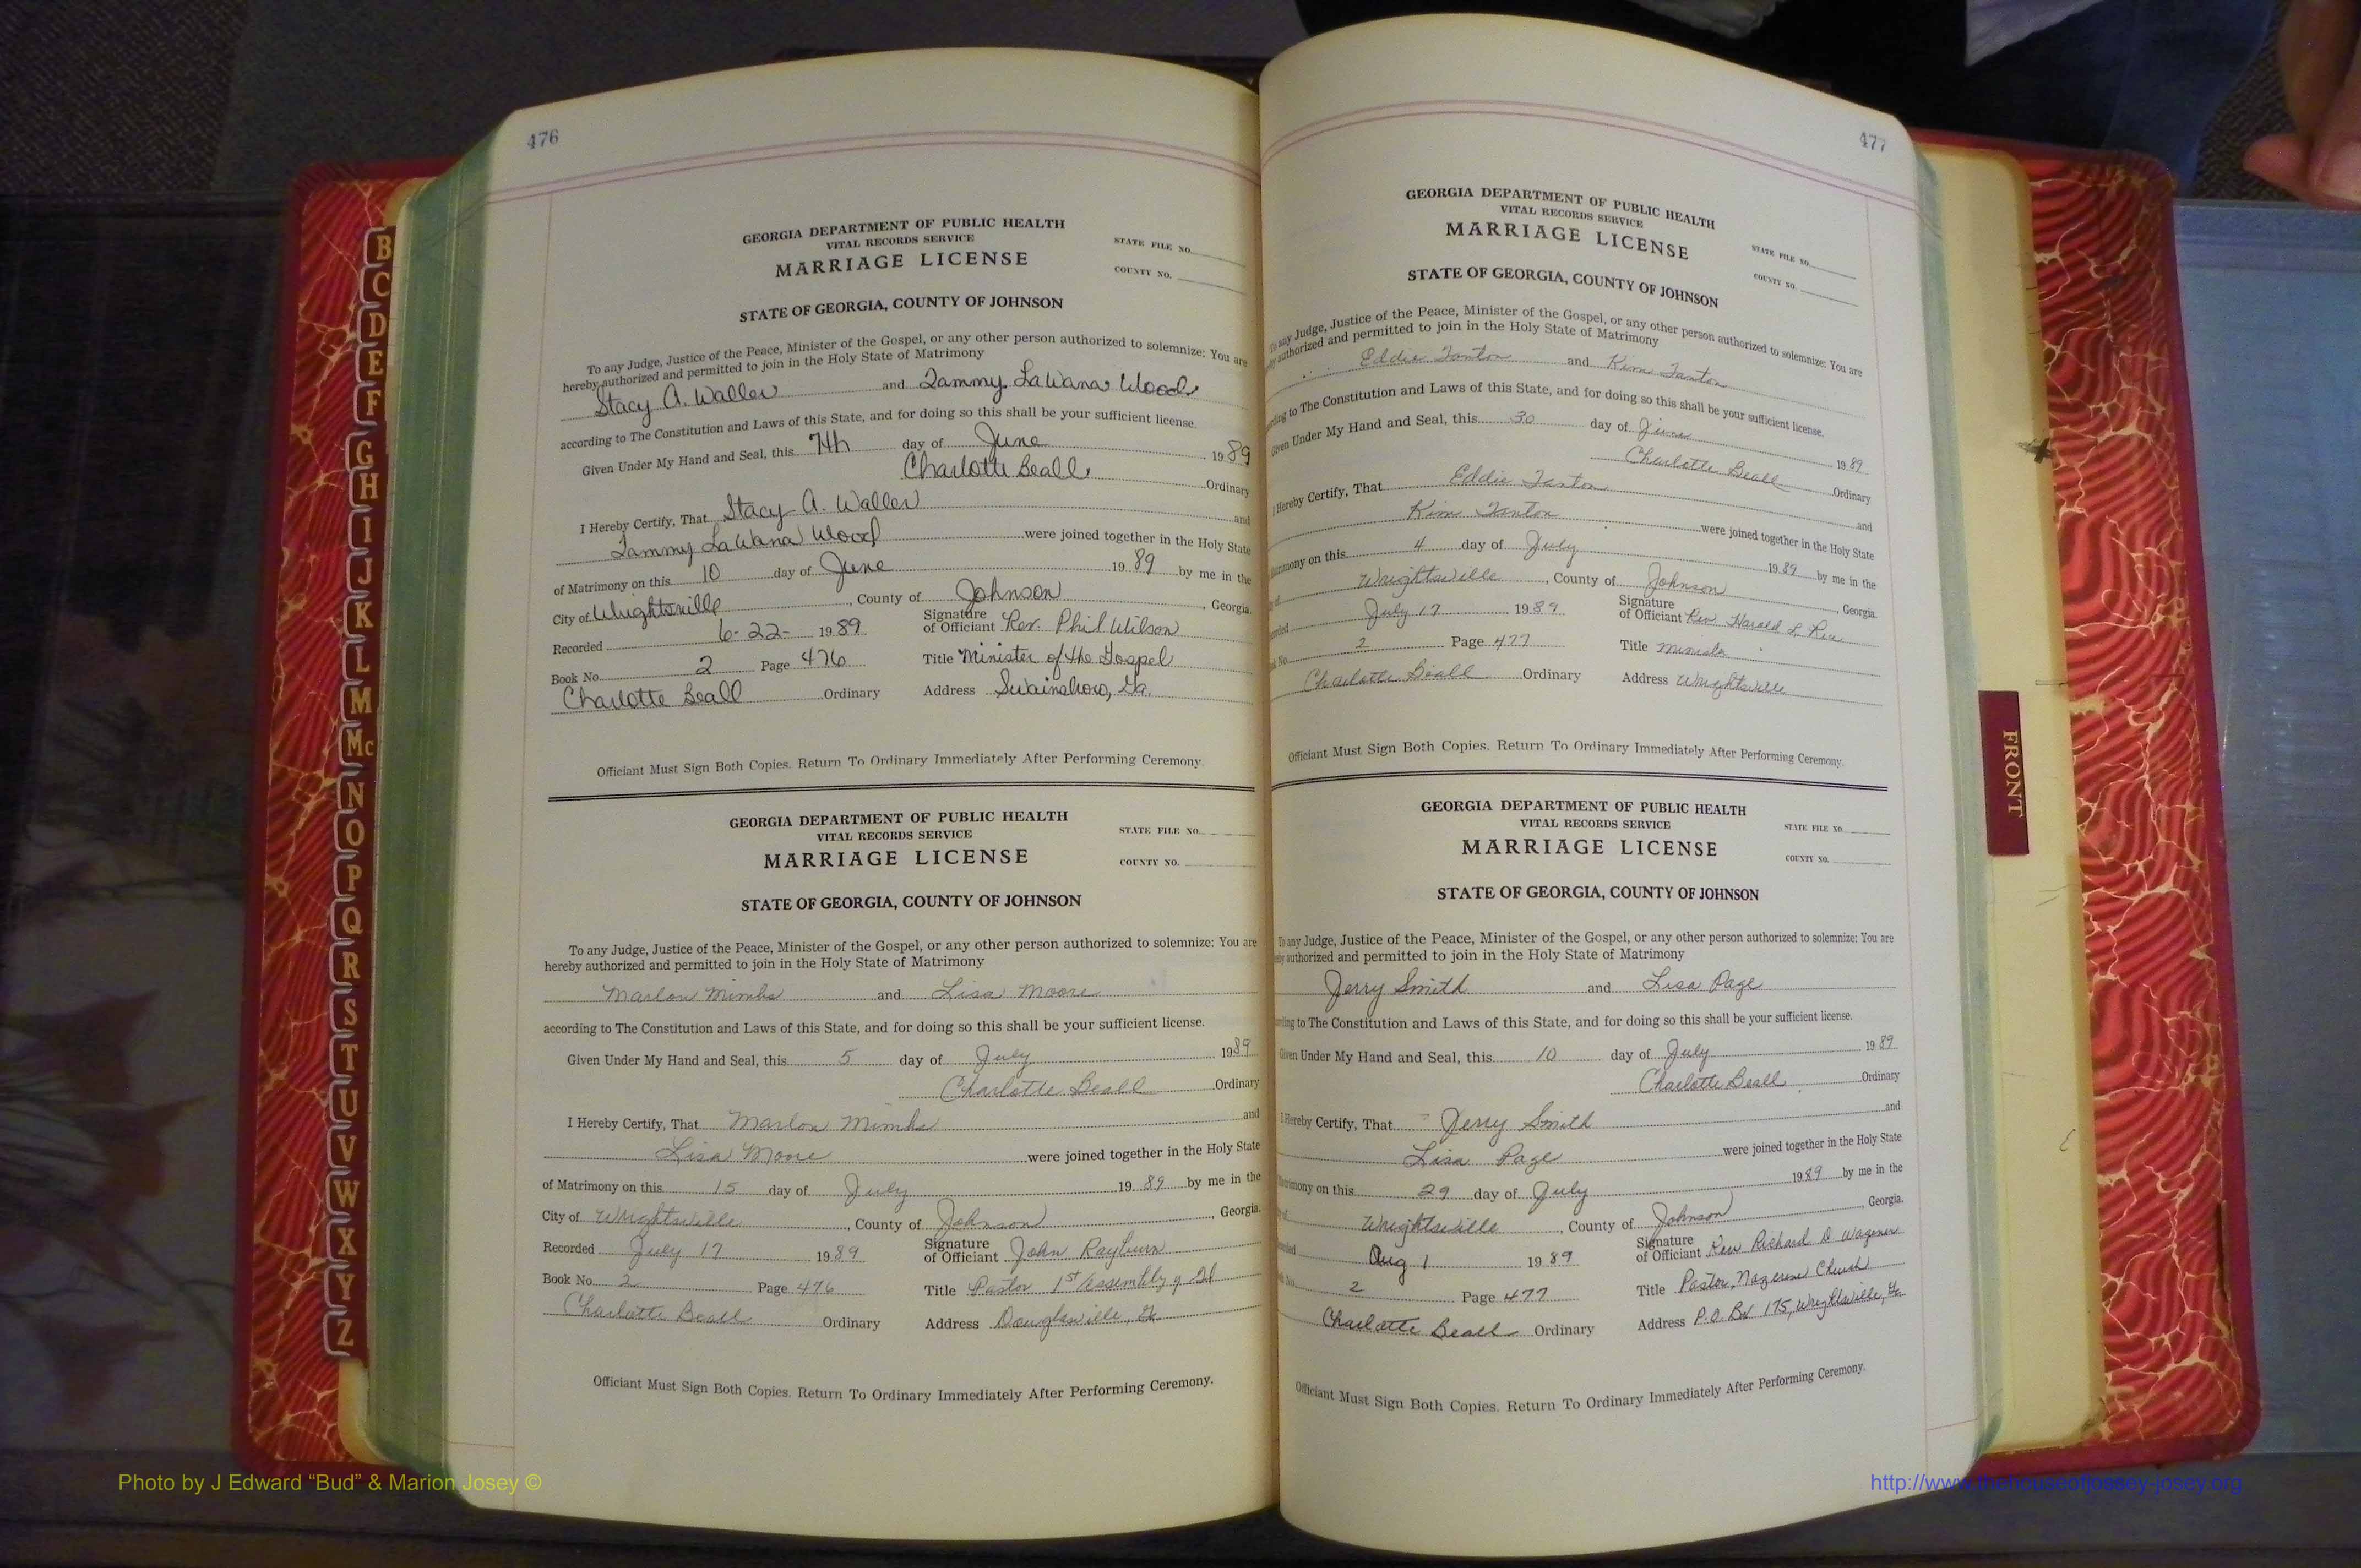 476
GEORGIA DEPARTMENT OF PUBLIC HEALTH
VITAL RECORDS SERVICE
MARRIAGE LICENSE
STATE FILE NO.
COUNTY NO.
STATE OF GEORGIA, COUNTY OF JOHNSON
To any Judge, Justice of the Peace, Minister of the Gospel, or any other person authorized to solemnize: You are
hereby authorized and permitted to join in the Holy State of Matrimony
Stacy A. Waller and Tammy LaWana Wood
according to The Constitution and Laws of this State, and for doing so this shall be your sufficient license.
Given Under My Hand and Seal, this 7th day of June 1989
Charlotte Beall Ordinary
I Hereby Certify, That Stacy A. Waller and
Tammy LaWana Wood were joined together in the Holy State
of Matrimony on this 10 day of June 1989 by me in the
City of Wrightsville, County of Johnson, Georgia
Recorded 6-22- 1989 Signature of Officiant Rev. Phil Wilson
Book No. 2 Page 476 Title Minister of the Gospel
Charlotte Beall Ordinary Address Swainsboro, Ga.
Officiant Must Sign Both Copies. Return To Ordinary Immediately After Performing Ceremony.
GEORGIA DEPARTMENT OF PUBLIC HEALTH
VITAL RECORDS SERVICE
MARRIAGE LICENSE
STATE FILE NO.
COUNTY NO.
STATE OF GEORGIA, COUNTY OF JOHNSON
To any Judge, Justice of the Peace, Minister of the Gospel, or any other person authorized to solemnize: You are
hereby authorized and permitted to join in the Holy State of Matrimony
Marlon Mimbs and Lisa Moore
according to The Constitution and Laws of this State, and for doing so this shall be your sufficient license.
Given Under My Hand and Seal, this 5 day of July 1989
Charlotte Beall Ordinary
I Hereby Certify, That Marlon Mimbs and
Lisa Moore were joined together in the Holy State
of Matrimony on this 15 day of July 1989 by me in the
City of Wrightsville, County of Johnson, Georgia.
Recorded July 17 1989 Signature of Officiant John Rayburn
Book No. 2 Page 476 Title Pastor 1st Assembly of
Charlotte Beall Ordinary Address Douglasville, Ga
Officiant Must Sign Both Copies. Return To Ordinary Immediately After Performing Ceremony.
477
GEORGIA DEPARTMENT OF PUBLIC HEALTH
VITAL RECORDS SERVICE
MARRIAGE LICENSE
STATE FILE NO.
COUNTY NO.
STATE OF GEORGIA, COUNTY OF JOHNSON
To any Judge, Justice of the Peace, Minister of the Gospel, or any other person authorized to solemnize: You are
by authorized and permitted to join in the Holy State of Matrimony
Eddie Tanton and Kim Tanton
ording to The Constitution and Laws of this State, and for doing so this shall be your sufficient license.
Given Under My Hand and Seal, this 30 day of June 1989
Charlotte Beall Ordinary
I Hereby Certify, That Eddie Tanton and
Kim Tanton were joined together in the Holy State
atrimony on this 4 day of July 1989 by me in the
Wrightsville, County of Johnson, Georgia.
July 17 1989 Signature of Officiant Rev. Harold L.
No. 2 Page 477 Title Minister
Charlotte Beall Ordinary Address Wrightsville
Officiant Must Sign Both Copies. Return To Ordinary Immediately After Performing Ceremony.
GEORGIA DEPARTMENT OF PUBLIC HEALTH
VITAL RECORDS SERVICE
MARRIAGE LICENSE
STATE FILE NO.
COUNTY NO.
STATE OF GEORGIA, COUNTY OF JOHNSON
To any Judge, Justice of the Peace, Minister of the Gospel, or any other person authorized to solemnize: You are
eby authorized and permitted to join in the Holy State of Matrimony
Jerry Smith and Lisa Page
ording to The Constitution and Laws of this State, and for doing so this shall be your sufficient license.
Given Under My Hand and Seal, this 10 day of July 1989
Charlotte Beall Ordinary
I Hereby Certify, That Jerry Smith and
Lisa Page were joined together in the Holy State
atrimony on this 29 day of July 1989 by me in the
Wrightsville, County of Johnson, Georgia.
Aug 1 1989 Signature of Officiant Rev Richard D. Wagner
2 Page 477 Title Pastor, Nazarene Church
Charlotte Beall Ordinary Address P.O. Box 175, Wrightsville, Ga
Officiant Must Sign Both Copies. Return To Ordinary Immediately After Performing Ceremony.
B
C
D
E
F
G
H
I
J
K
L
M
Mc
N
O
P
Q
R
S
T
U
V
W
X
Y
Z
FRONT
Photo by J Edward “Bud” & Marion Josey ©
http://www.thehouseofjossey-josey.org